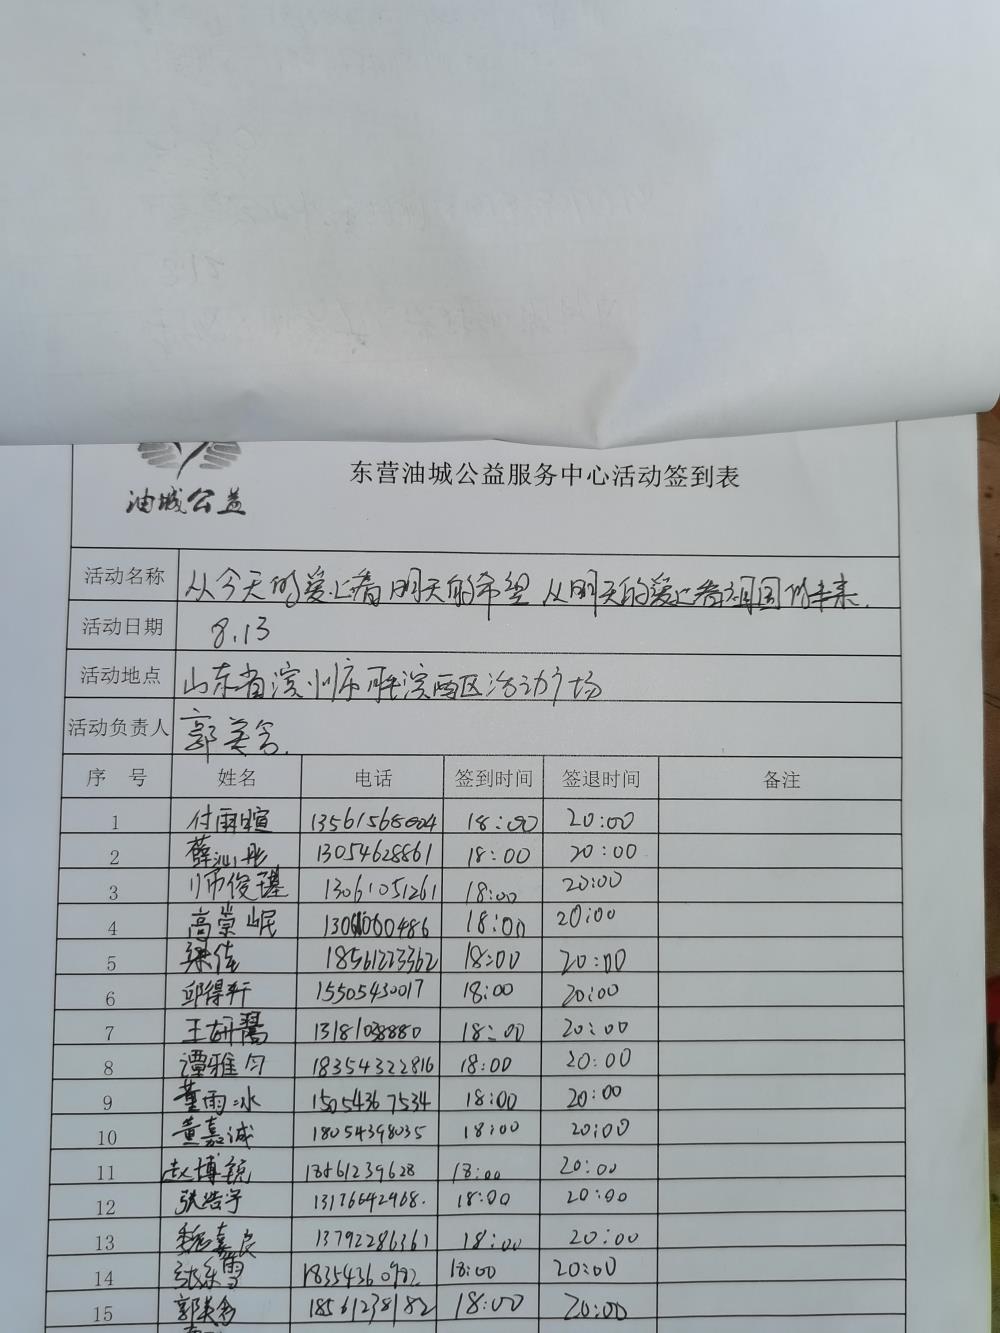 油城公益
东营油城公益服务中心活动签到表
活动名称 从今天的爱上看明天的希望 从明天的爱上看祖国的未来.
活动日期 8.13
活动地点 山东省滨州市 滨西区活动广场
活动负责人 郭英含.
序 号 姓名 电话 签到时间 签退时间 备注
1 付雨暄 13561568004 18:00 20:00
2 薛沁彤 13054628861 18:00 20:00
3 师俊 13061051261 18:00 20:00
4 高崇岷 18:00 20:00
5 梁倩 18561223362 18:00 20:00
6 邱得轩 15505430017 18:00 20:00
7 王妍 18:00 20:00
8 谭雅匀 18354322816 18:00 20:00
9 董雨冰 15054367534 18:00 20:00
10 黄嘉诚 18054398035 18:00 20:00
11 赵博锐 18661239628 18:00 20:00
12 张浩宇 13176642968. 18:00 20:00
13 魏嘉良 13792286361 18:00 20:00
14 18:00 20:00
15 郭英含 18561238182 18:00 20:00